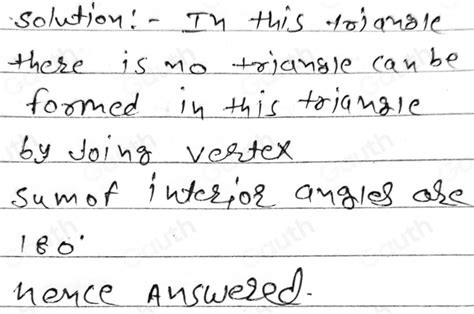 Solution:- In this triangle
there is no triangle can be
formed in this triangle
by Joing vertex
sum of interior angles are
180°
hence Answered.